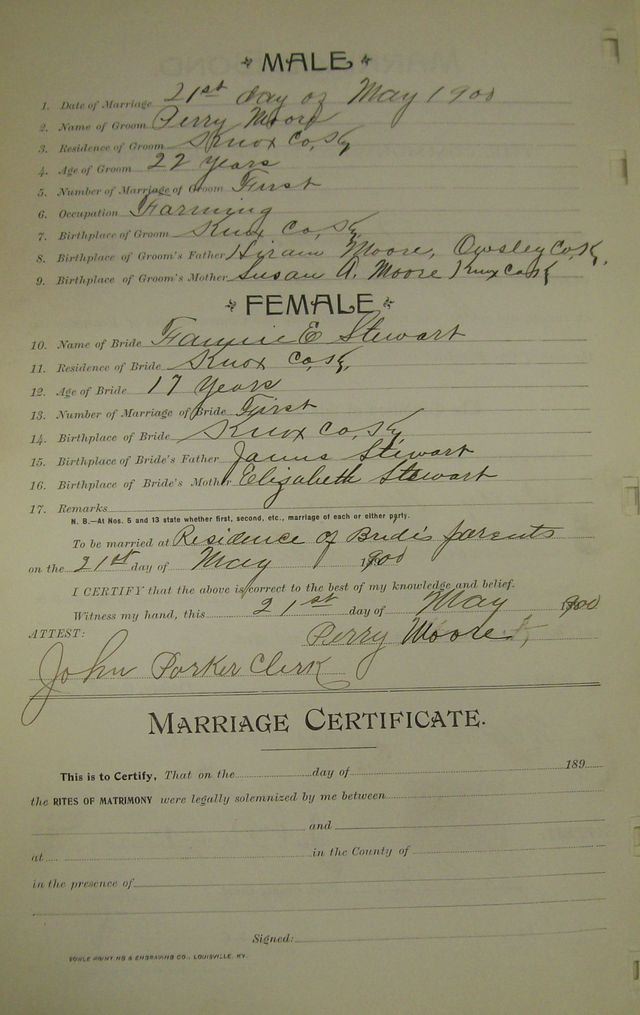 MALE
1. Date of Marriage 21st day of May 1900
2. Name of Groom Perry Moore
3. Residence of Groom Knox Co, Ky
4. Age of Groom 22 years
5. Number of Marriage of Groom First
6. Occupation Farming
7. Birthplace of Groom Knox Co, Ky
8. Birthplace of Groom's Father Hiram Moore, Owsley Co, K.
9. Birthplace of Groom's Mother Susan A. Moore Knox Co K
FEMALE
10. Name of Bride Fannie E Stewart
11. Residence of Bride Knox Co, Ky,
12. Age of Bride 17 years
13. Number of Marriage of Bride First
14. Birthplace of Bride Knox Co, Ky
15. Birthplace of Bride's Father James Stewart
16. Birthplace of Bride's Mother Elizabeth Stewart
17. Remarks
N. B.—At Nos. 5 and 13 state whether first, second, etc., marriage of each or either party.
To be married at Residence of Bride's parents
on the 21st day of May 1900
I CERTIFY that the above is correct to the best of my knowledge and belief.
Witness my hand, this 21st day of May 1900
ATTEST: Perry Moore
John Parker Clerk
MARRIAGE CERTIFICATE.
This is to Certify, That on the day of 189
the RITES OF MATRIMONY were legally solemnized by me between
and
at in the County of
in the presence of
Signed:
& ENGRAVING CO., LOUISVILLE, KY.